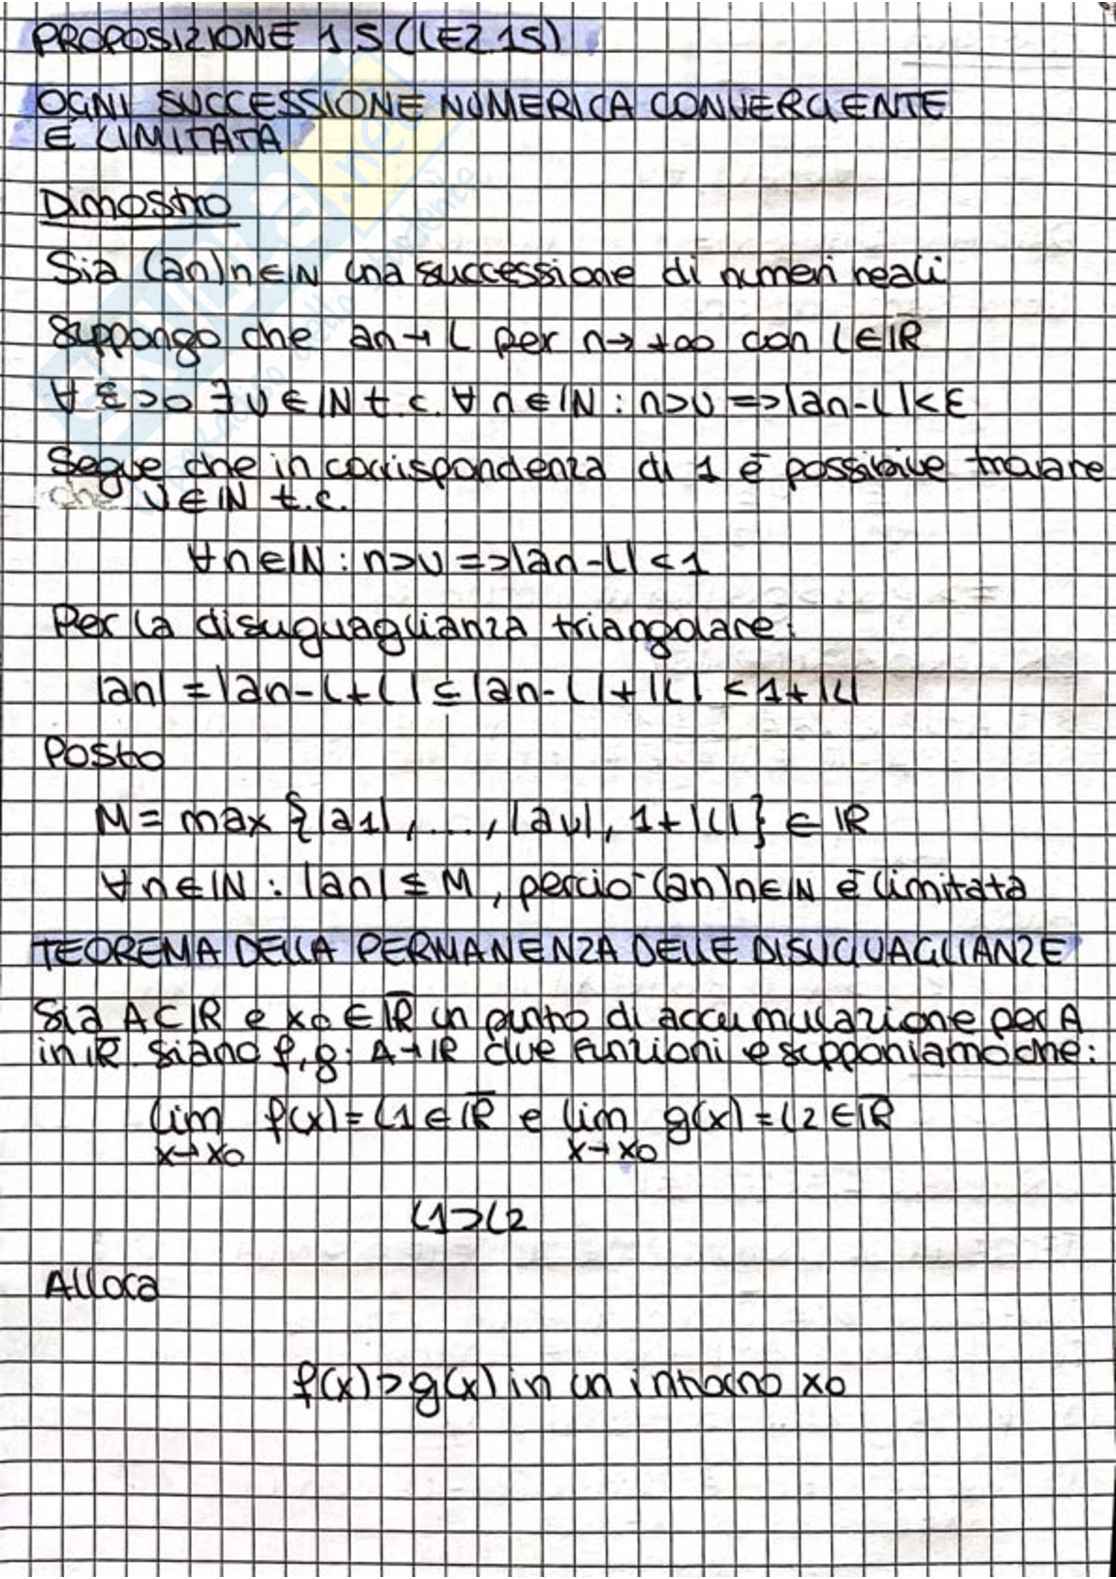 PROPOSIZIONE 15 (LEZ 15)
OGNI SUCCESSIONE NUMERICA CONVERGENTE
È LIMITATA
Dimostro
Sia (an)n∈ℕ una successione di numeri reali
Suppongo che an→L per n→+∞ con L∈ℝ
∀ε>0 ∃ν∈ℕ t.c. ∀n∈ℕ: n>ν=>|an-L|<ε
Segue che in corrispondenza di 1 è possibile trovare
ν∈ℕ t.c.
∀n∈ℕ: n>ν=>|an-L|<1
Per la disuguaglianza triangolare:
|an|=|an-L+L|≤|an-L|+|L|<1+|L|
Posto
M=max{|a1|,...,|aν|, 1+|L|}∈ℝ
∀n∈ℕ: |an|≤M, perciò (an)n∈ℕ è limitata
TEOREMA DELLA PERMANENZA DELLE DISUGUAGLIANZE
Sia A⊂ℝ e x0∈ℝ̅ un punto di accumulazione per A
in ℝ̅ siano f,g: A→ℝ due funzioni e supponiamo che:
lim f(x)=L1∈ℝ̅ e lim g(x)=L2∈ℝ̅
x→x0 x→x0
L1>L2
Allora
f(x)>g(x) in un intorno x0